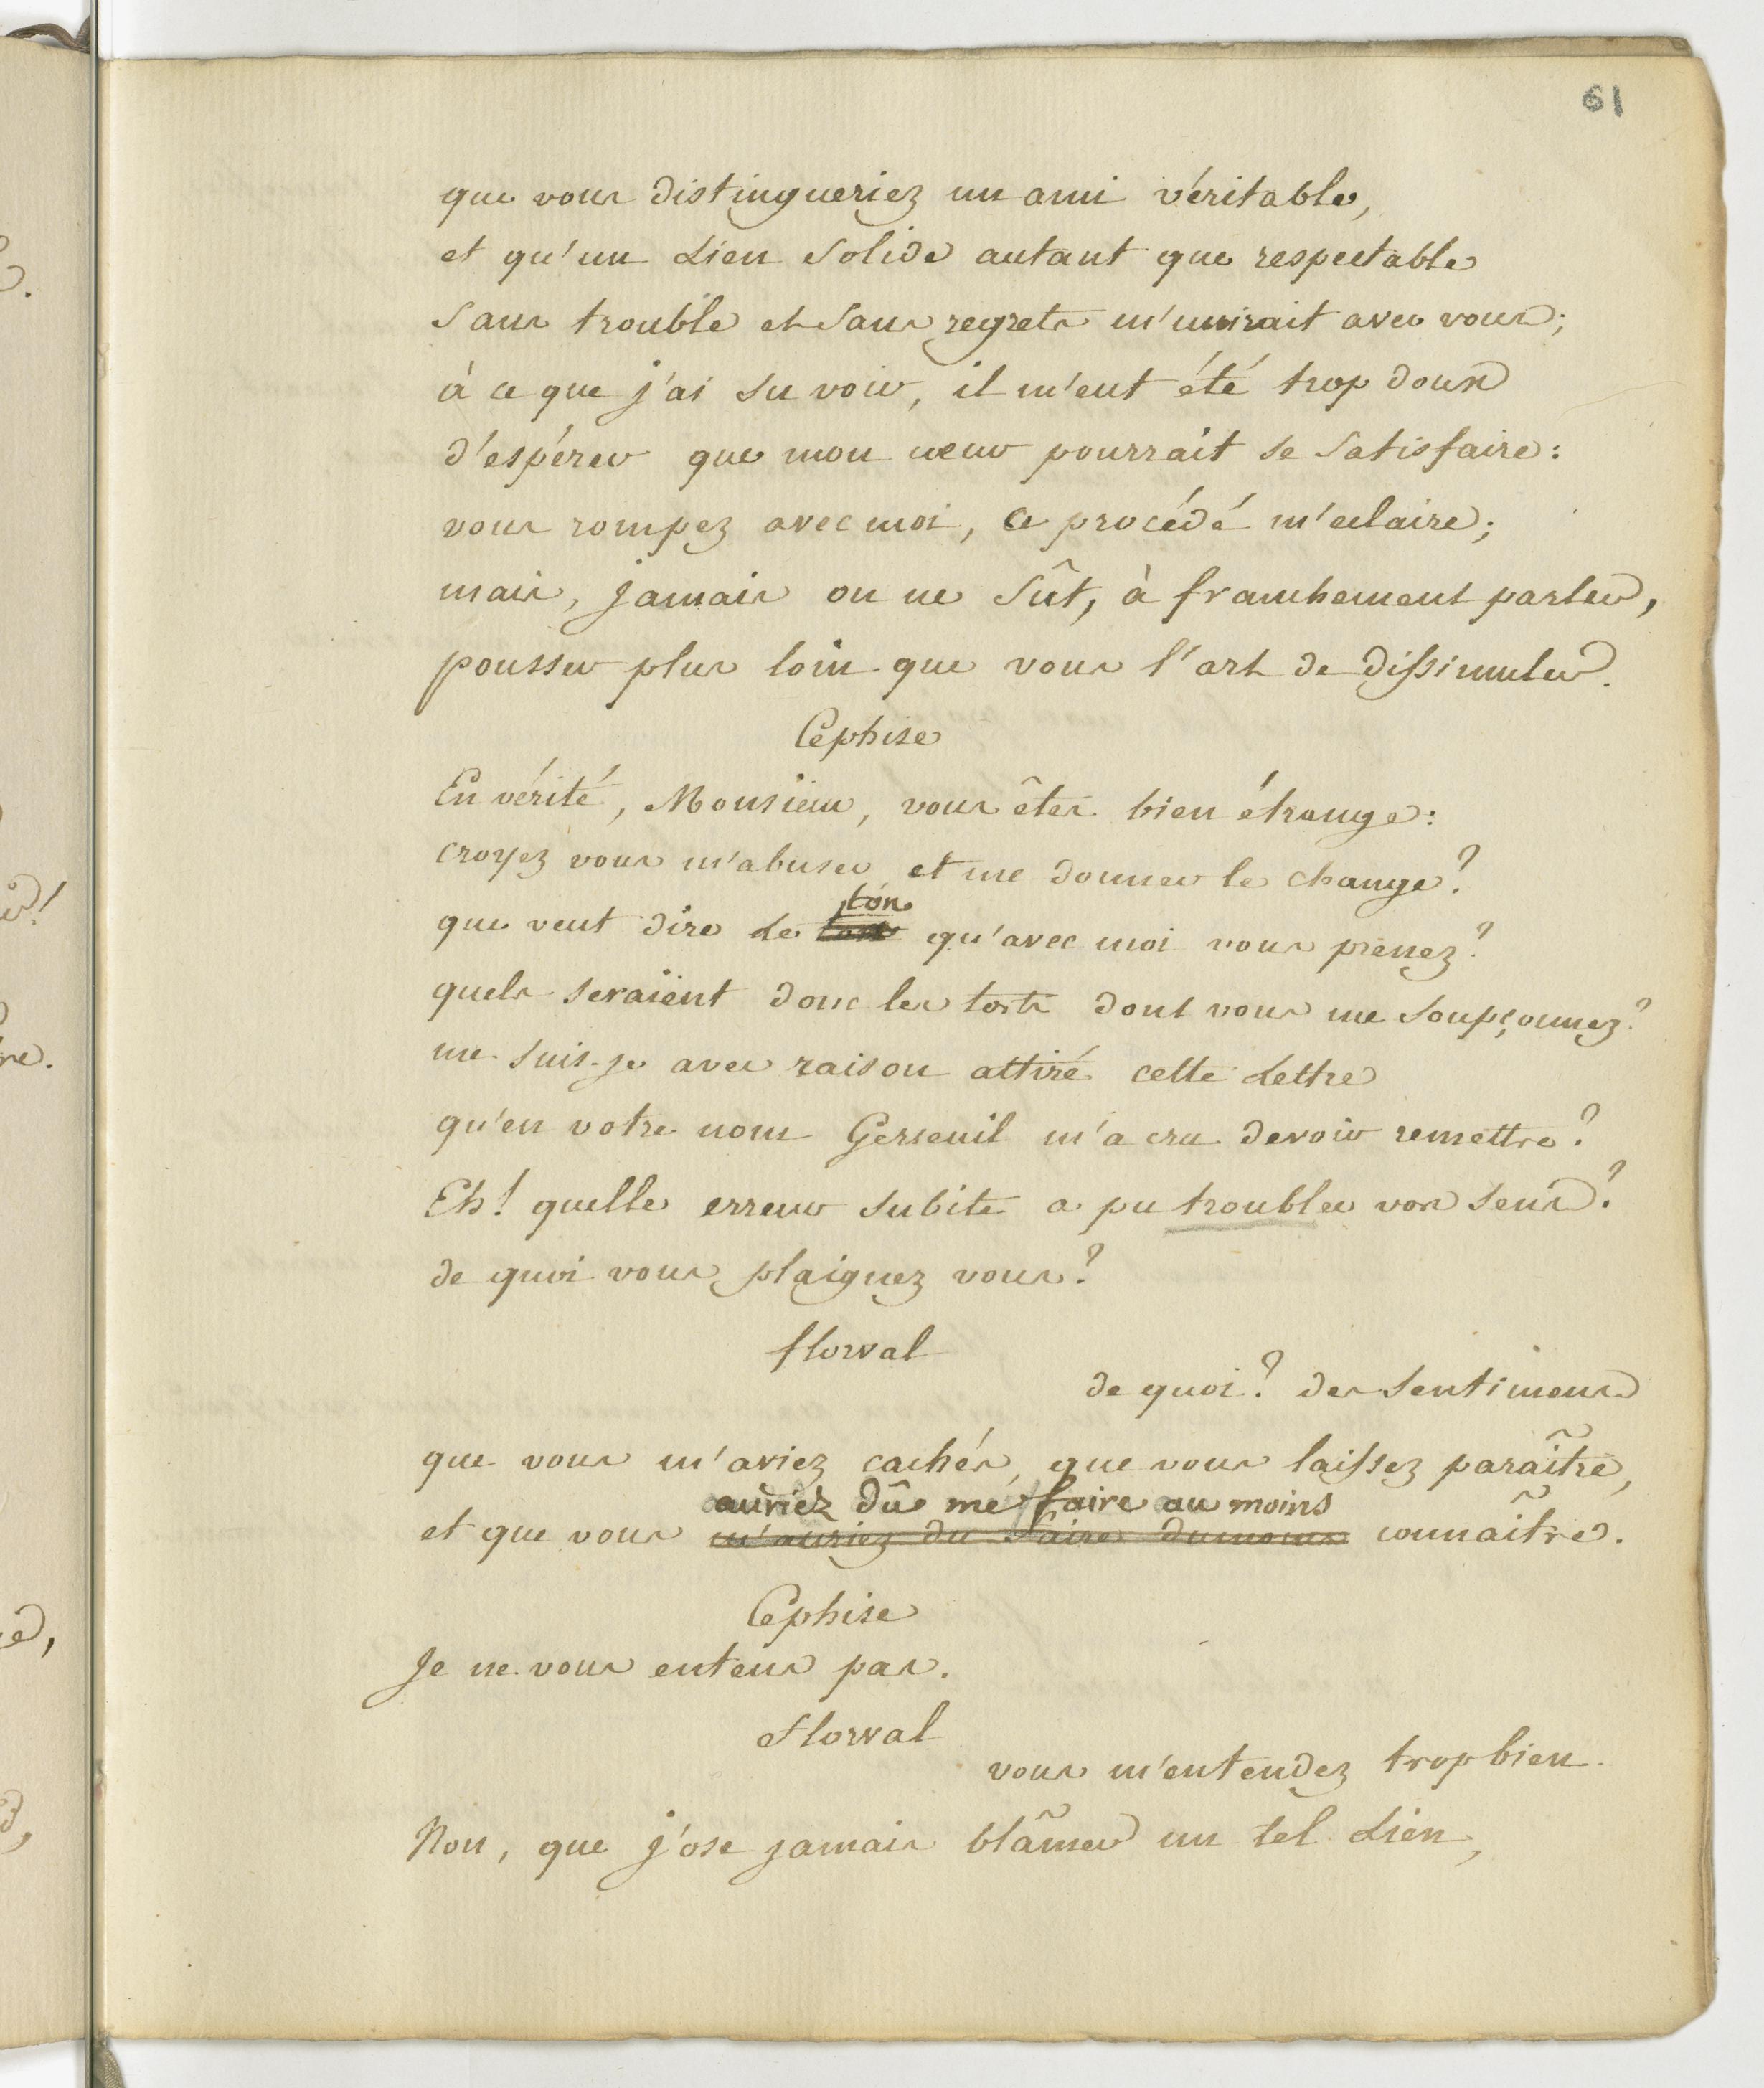 61
que vous distingueriez un ami véritable,
et qu'un Lien Solide autant que respectable
Sans trouble et Sans regrets m'unirait avec vous;
à ce que j'ai Su voir, il m'eut été trop doux
d'espérer que mon coeur pourrait se Satisfaire:
vous rompez avec moi, ce procédé m'eclaire;
mais, jamais on ne Sût, à franchement parler,
pousser plus loin que vous l'art de dissimuler.
Cephise
En vérité, Monsieur, vous êtes bien étrange:
croyez vous m'abuser et me donner le change?
ton
que veut dire Le qu'avec moi vous prenez?
quels seraient donc les torts dont vous me Soupçonnez?
me Suis-je avec raison attiré cette Lettre
qu'en votre nom Gerseuil m'a cru devoir remettre?
Eh! quelle erreur Subite a pu troubler vos Sens?
de quoi vous plaignez vous?
florval
de quoi? des Sentimens
que vous m'aviez cachés, que vous laissez paraître,
auriez dû me faire au moins
et que vous m'auriez du faire dumoins connaître.
Cephise
Je ne vous entens pas.
Florval
vous m'entendez trop bien.
Non, que j'ose jamais blâmer un tel Lien,